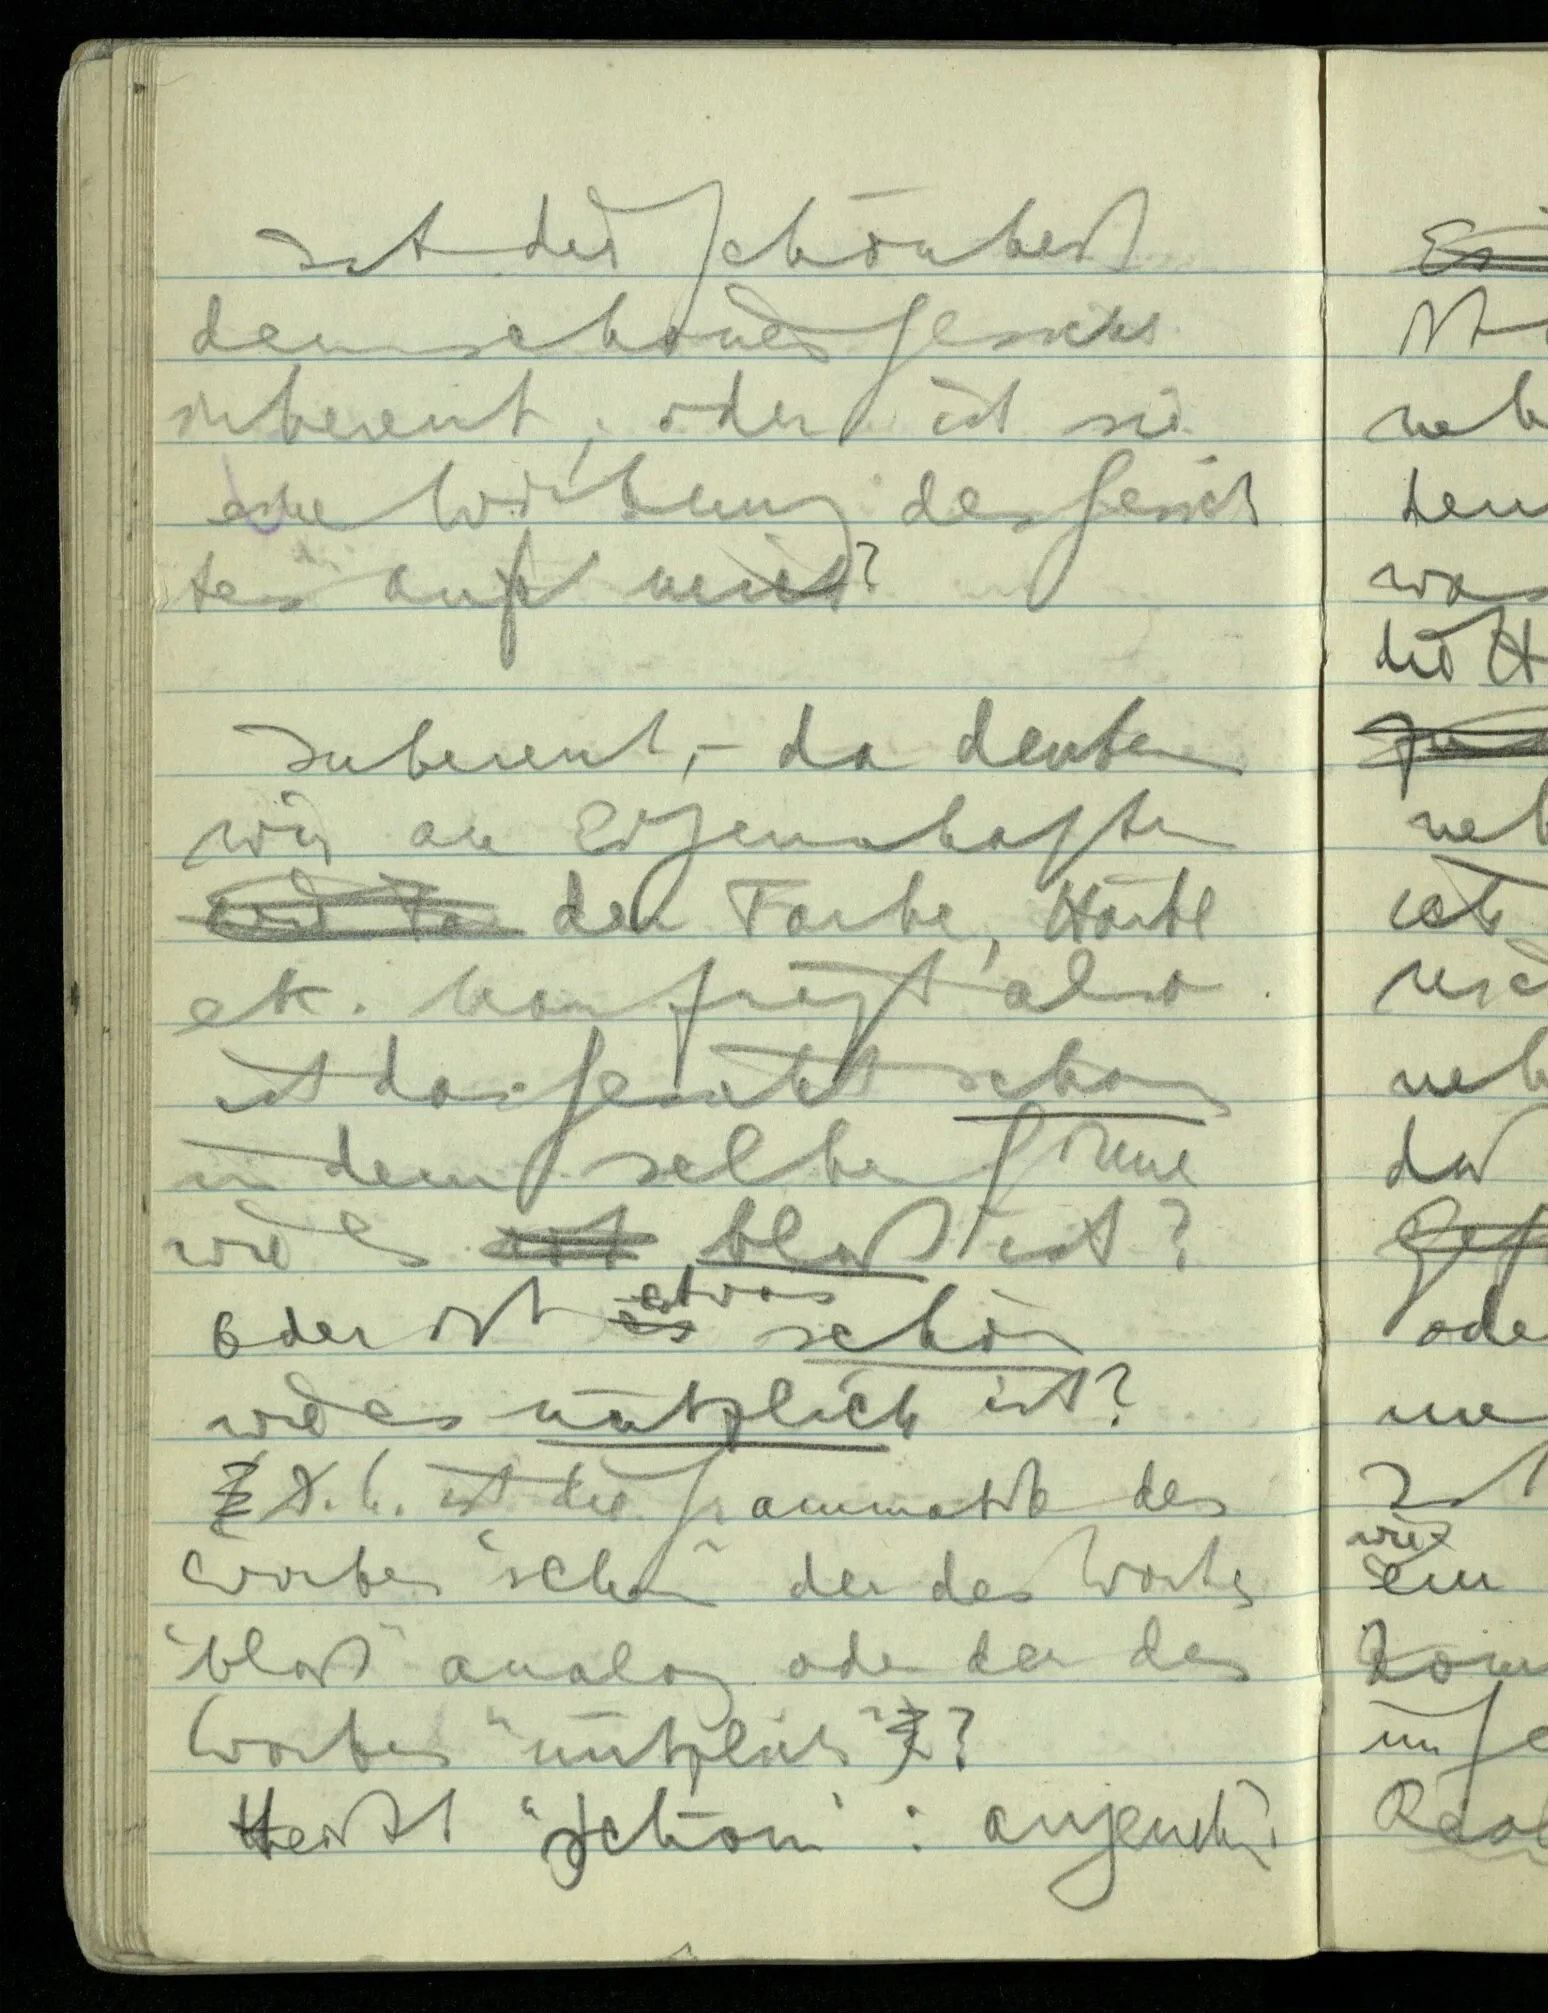 Ist die Schönheit
dem schönen Gesicht
inherent, oder ist sie
eine Wirkung des Gesich
tes auf mich?
Inherent, – da denken
wir an Eigenschaften
wie Fa der Farbe, Härte
etc. Man frägt also
ist das Gesicht schön
in dem selben Sinne
wie es ist blaß ist?
etwas
Oder ist es schön
wie es nützlich ist?
D.h. ist die Grammatik des
Wortes "schön" der des Wortes
"blaß" analog oder der des
Wortes "nützlich"?
Heißt "schön": angenehm
Es
Ist
neh
ten
was
die H
neh
ich
neh
das
ode
wie
ein